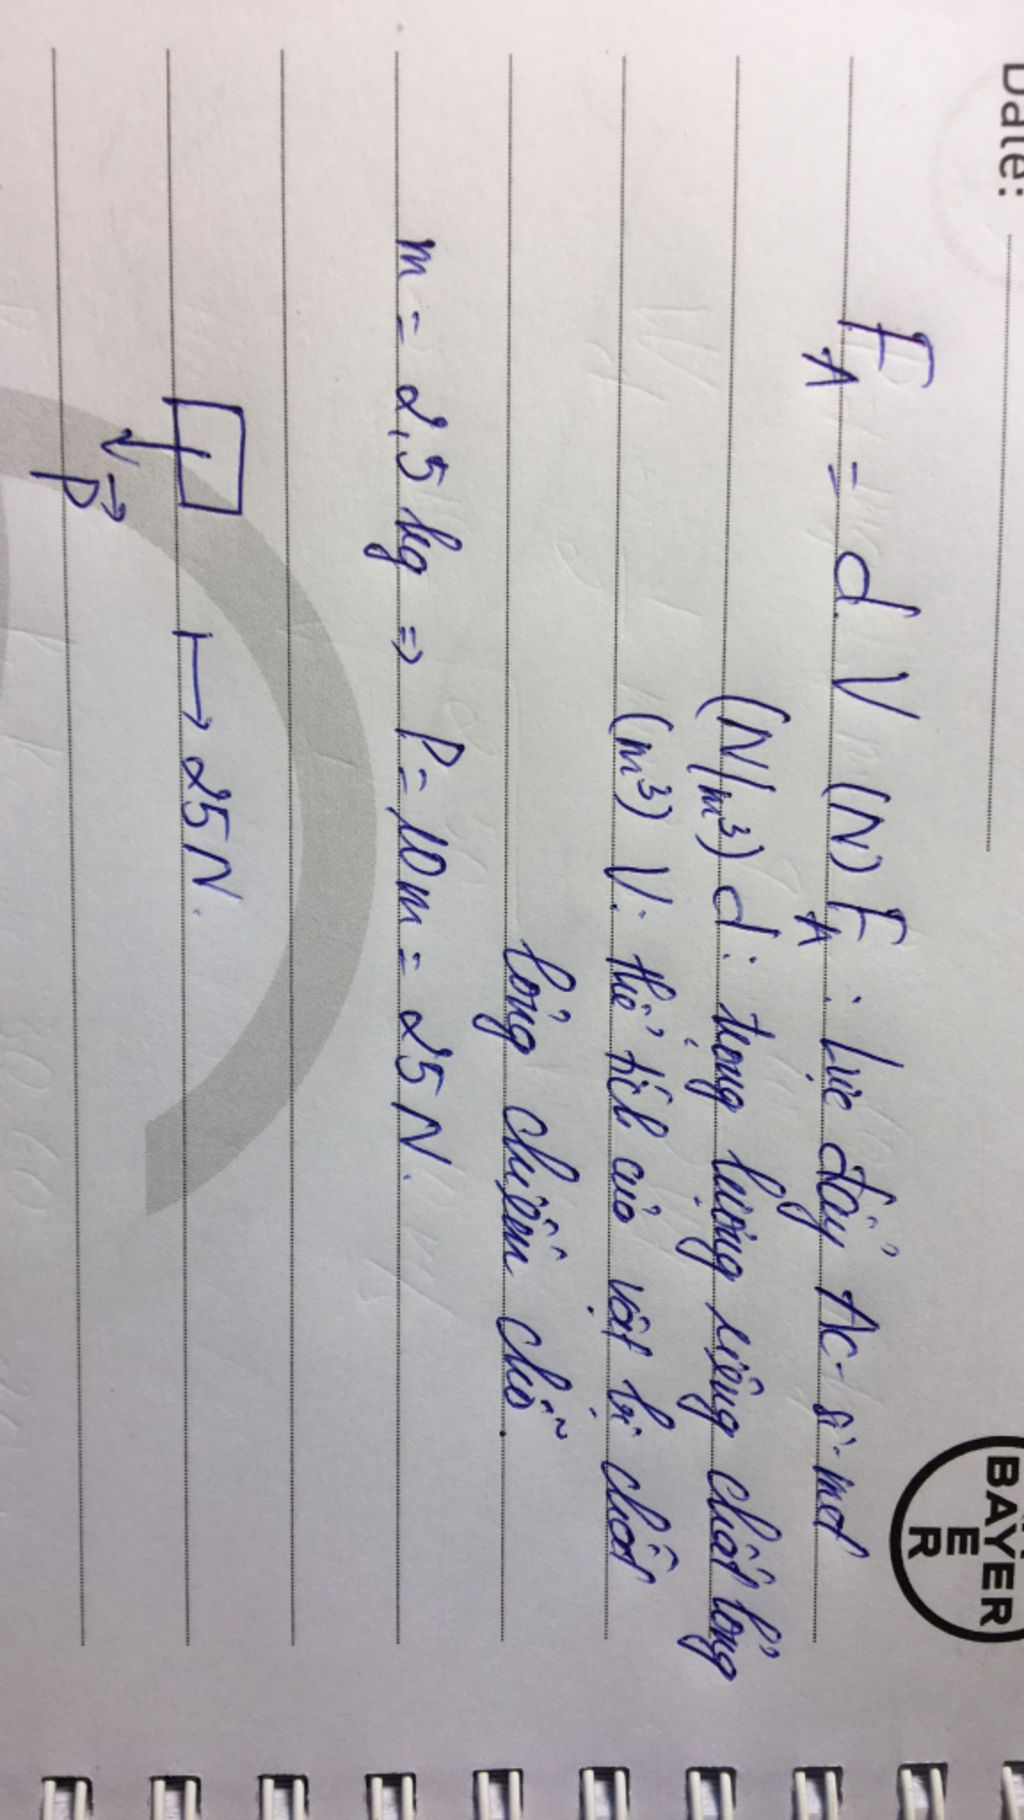 Date:
BAYER
E
R
F_A = d.V (N) F_A: Lực đẩy Ac-si-met
(N/m³) d: trọng lượng riêng chất lỏng
(m³) V: thể tích của vật bị chất
lỏng chiếm chỗ.
m = 2,5 kg => P = 10m = 25 N.
P→ ⟼ 25 N.